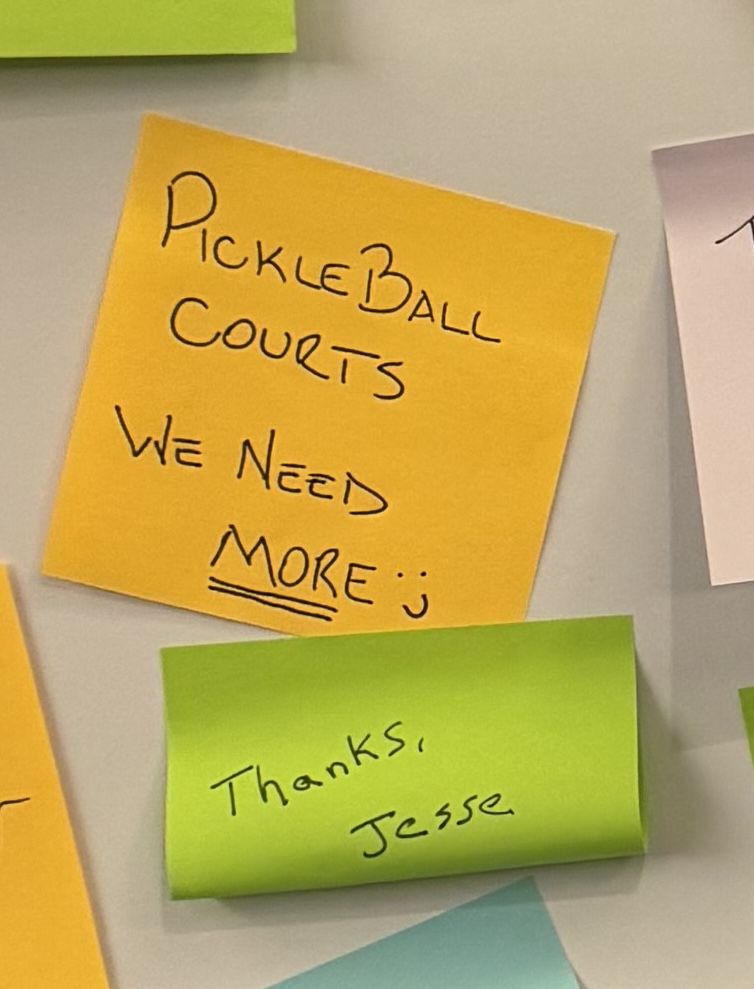 PICKLEBALL
COURTS
WE NEED
MORE :)
Thanks,
Jesse